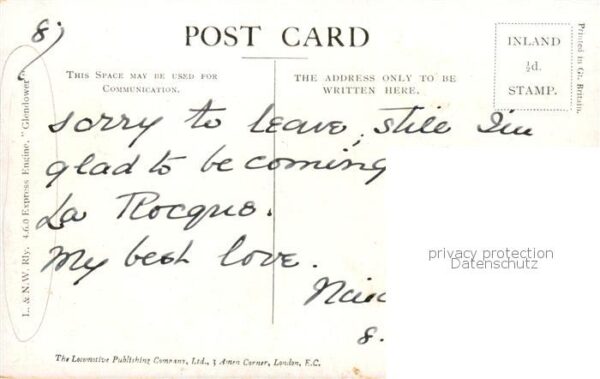 8)
POST CARD
THIS SPACE MAY BE USED FOR
COMMUNICATION.
THE ADDRESS ONLY TO BE
WRITTEN HERE.
INLAND
½d.
STAMP.
Printed in Gt. Britain.
L. & N.W. Rly. 4.6.0 Express Engine, "Glendower"
sorry to leave, still I'm
glad to be coming
La Rocque.
My best love.
8.
privacy protection
Datenschutz
The Locomotive Publishing Company, Ltd., 3 Amen Corner, London, E.C.